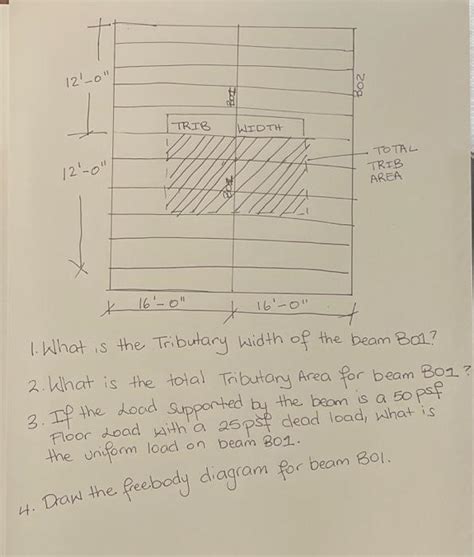 12'-0"
B01
B02
TRIB WIDTH
TOTAL
TRIB
AREA
12'-0"
B01
16'-0" 16'-0"
1. What is the Tributary Width of the beam B01?
2. What is the total Tributary Area for beam B01?
3. If the Load supported by the beam is a 50psf
Floor Load with a 25psf dead load, what is
the uniform load on beam B01.
4. Draw the freebody diagram for beam B01.